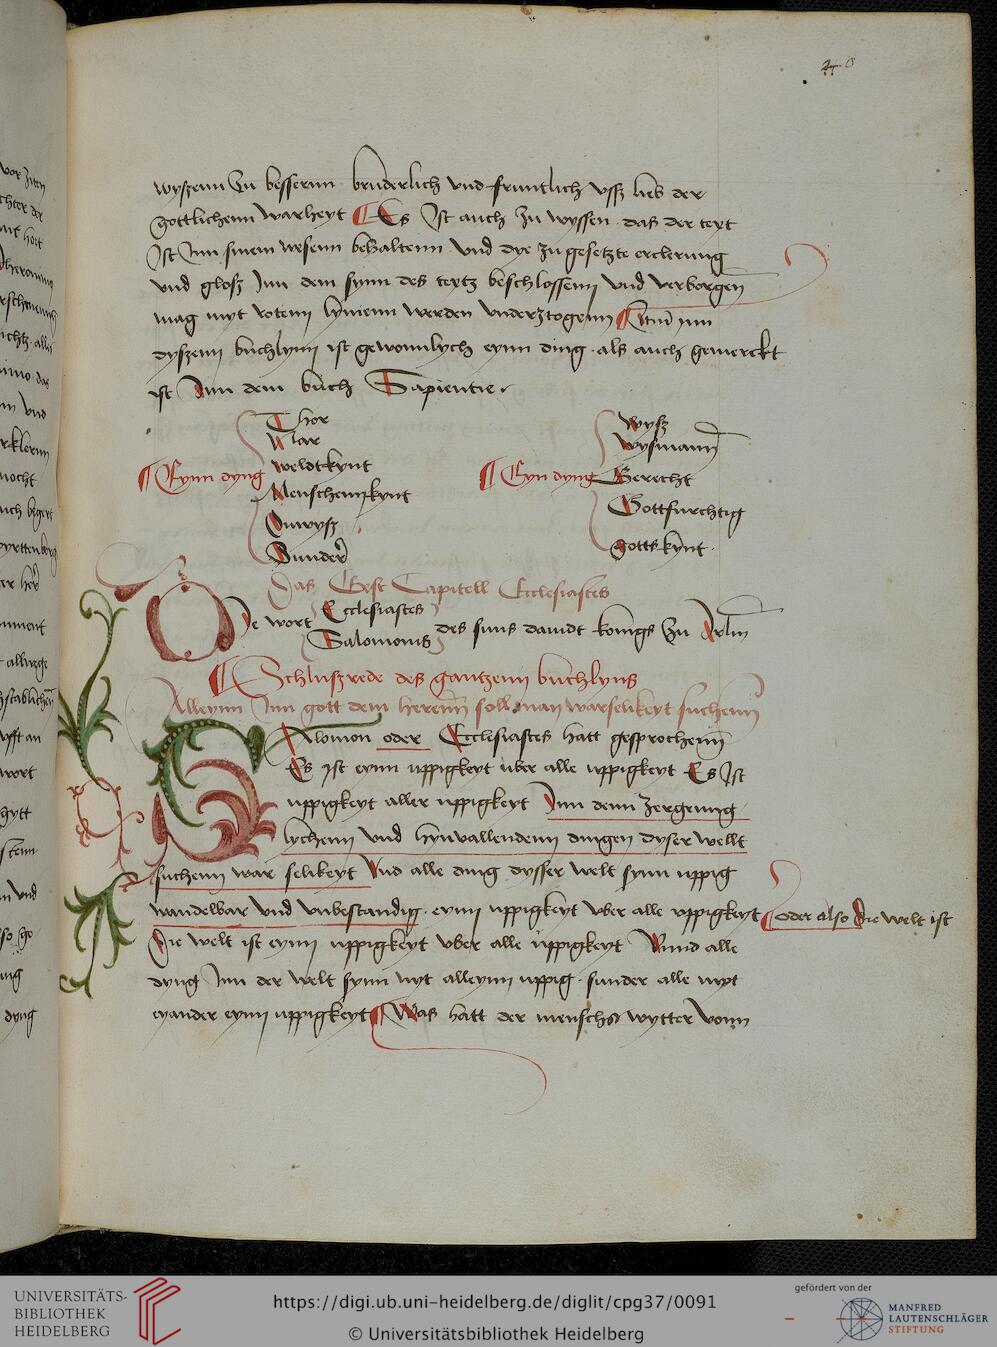 wyszenn Zu bessernn bruderlich vnd fruntlich vsz lieb der
gottlichenn warheyt Es Ist auch zu wyssen das der text
Ist Inn sinem wesenn behaltenn Vnd dye zu gesetzte erclerung
vnd glosz Inn dem synn des textz beschlossenn vnd verborgen
mag myt rotenn lynienn werden vnderztogenn Item Inn
dyszenn buchlynn ist gewonnlych eynn ding als auch gemerckt
ist Inn dem buch Sapientie
Thor
Nar
Eynn dyng weldtkynt
Menschennkynt
Onwysz
Sunder
wysz
wysmann
Eyn dyng Gerecht
Gottfurchtig
gottskynt
Das Erst Capitell Ecclesiastes
Die wort Ecclesiastes Salomonis des suns dauidt konigs Zu
Schluszrede des gantzenn buchlyns
Alleynn Inn gott dem herenn soll man warselikeyt suchenn
Salomon oder Ecclesiastes hatt gesprochenn
Es yst eynn uppigkeyt uber alle uppigkeyt Es Ist
uppigkeyt aller uppigkeyt Inn denn zergeng
lychenn vnd hynuallendenn dingen dyser wellt
suchenn war selikeyt Vnd alle ding dysser welt synn uppig
wandelbar vnd vnbestandig eynn uppigkeyt vber alle uppigkeyt oder also Die welt ist
Die welt ist eynn uppigkeyt vber alle uppigkeyt Vnnd alle
dyng Inn der welt synn nyt alleynn uppig sunder alle myt
eyander eynn uppigkeyt Was hatt der mensch wytter vonn
UNIVERSITÄTS-
BIBLIOTHEK
HEIDELBERG
https://digi.ub.uni-heidelberg.de/diglit/cpg37/0091
© Universitätsbibliothek Heidelberg
gefördert von der
MANFRED
LAUTENSCHLÄGER
STIFTUNG